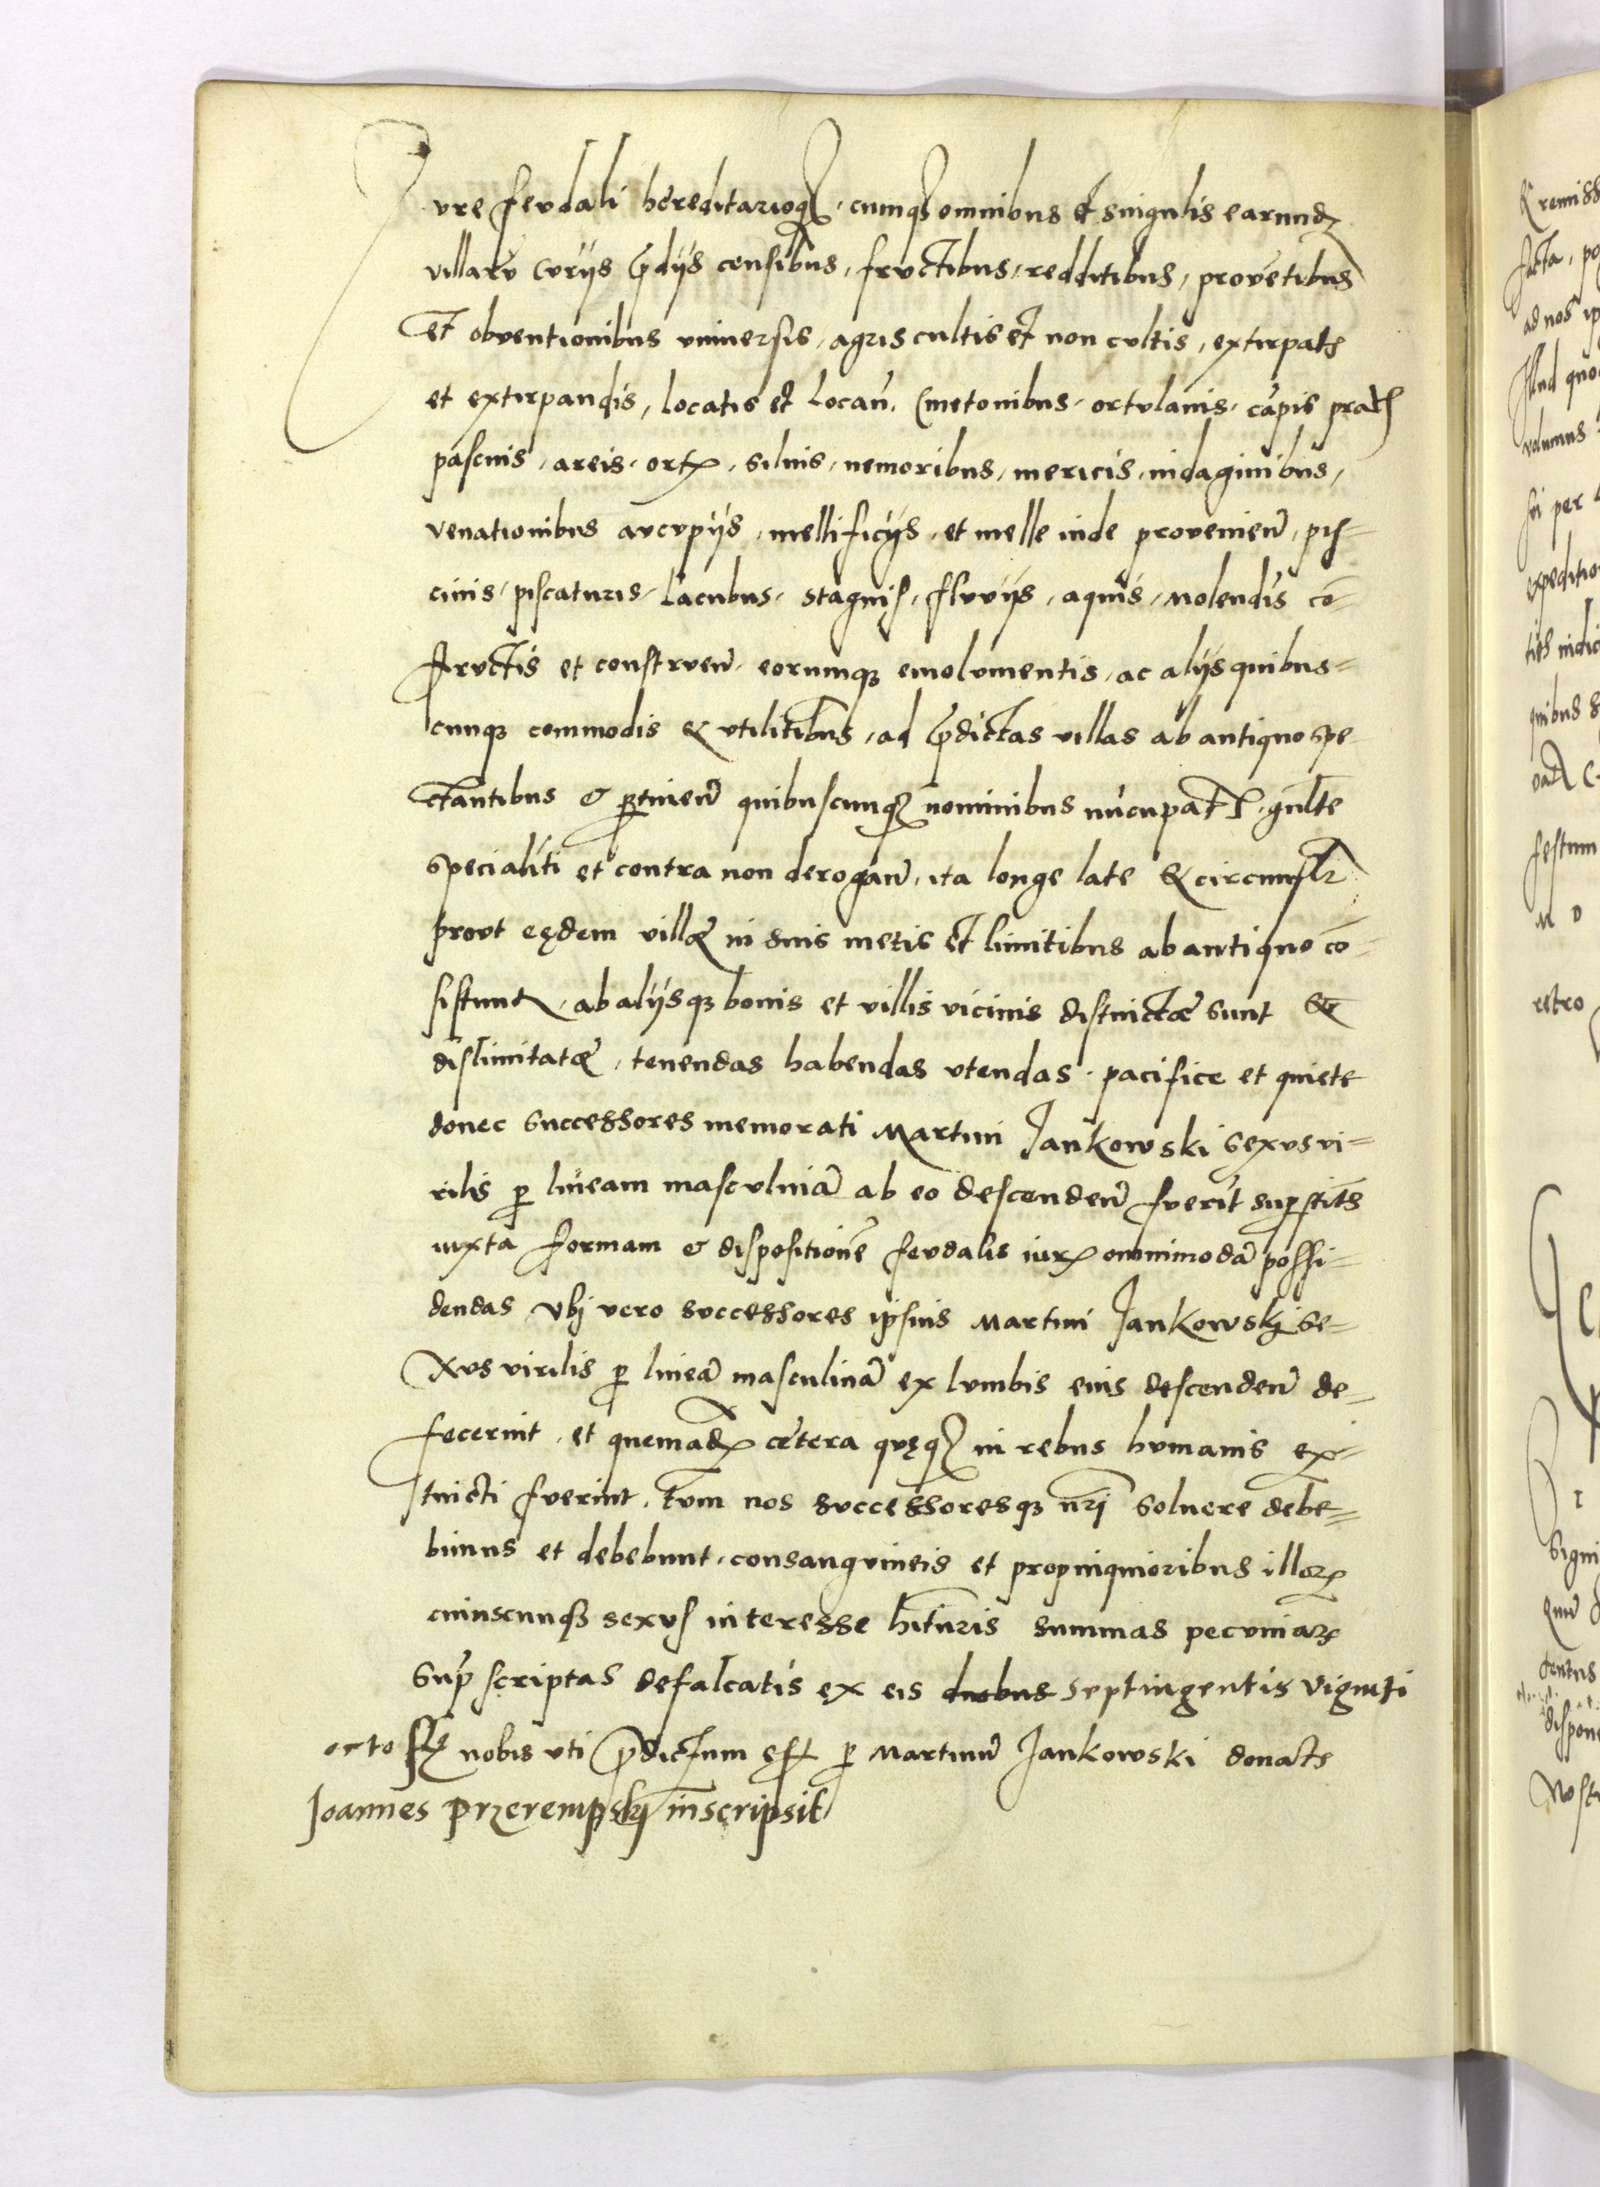 Jure feudali hereditarioq₃, cumq₃ omnibus et singulis earund₃
villarū curijs p̄dijs censibus, fructibus, redditibus, provētibus
et obventionibus universis, agris cultis et non cultis, extirpatis
et extirpandis, locatis et locan̄. Cmetonibus, ortulanis, cāpis pratis
pascuis, areis, ortꝝ, siluis, nemoribus, mericis, indaginibus,
venationibus aucupijs, mellificijs, et melle inde provenien̄, pis-
cinis, piscaturis, Lacubus, stagnis, fluvijs, aquis, molendis cō-
structis et construen̄, eorumq₃ emolumentis, ac alijs quibus=
cunq₃ commodis & utilitibus, ad p̄dictas villas ab antiquo spe-
ctantibus et ꝑtinen̄ quibuscunq₃ nominibus nūcupatis, gn̄lte
specialiti et contra non derogan̄, ita longe late & circumf
prout eędem villæ in suis metis et limitibus ab antiquo cō-
sistunt, ab alijsq₃ bonis et villis vicinis distinctæ sunt &
dislimitatæ, tenendas habendas utendas, pacifice et quiete
donec successores memorati Martini Jankowski sexus vi=
rilis ꝑ lineam masculinā ab eo descenden̄ fuerit supstites
iuxta formam et dispositionē feudalis iurꝝ omnimodā possi=
dendas Vbj vero successores ipsius Martini Jankowskj se=
xus virilis ꝑ lineā masculinā ex lumbis eius descenden̄ de=
fecerint, et quemadꝝ cætera quęq₃ in rebus humanis ex-
tincti fuerint, tum nos successoresq₃ nrj̄ soluere debe=
bimus et debebunt, consanguineis et propinquioribus illoꝝ
cuiuscunq₃ sexus interesse hituris summas pecuniaꝝ
sup̄ scriptas defalcatis ex eis duobus septingentis viginti
octo fl̄ nobis uti p̄dictum est ꝑ Martinū Jankowski donatis
Joannes Przerempskj inscripsit